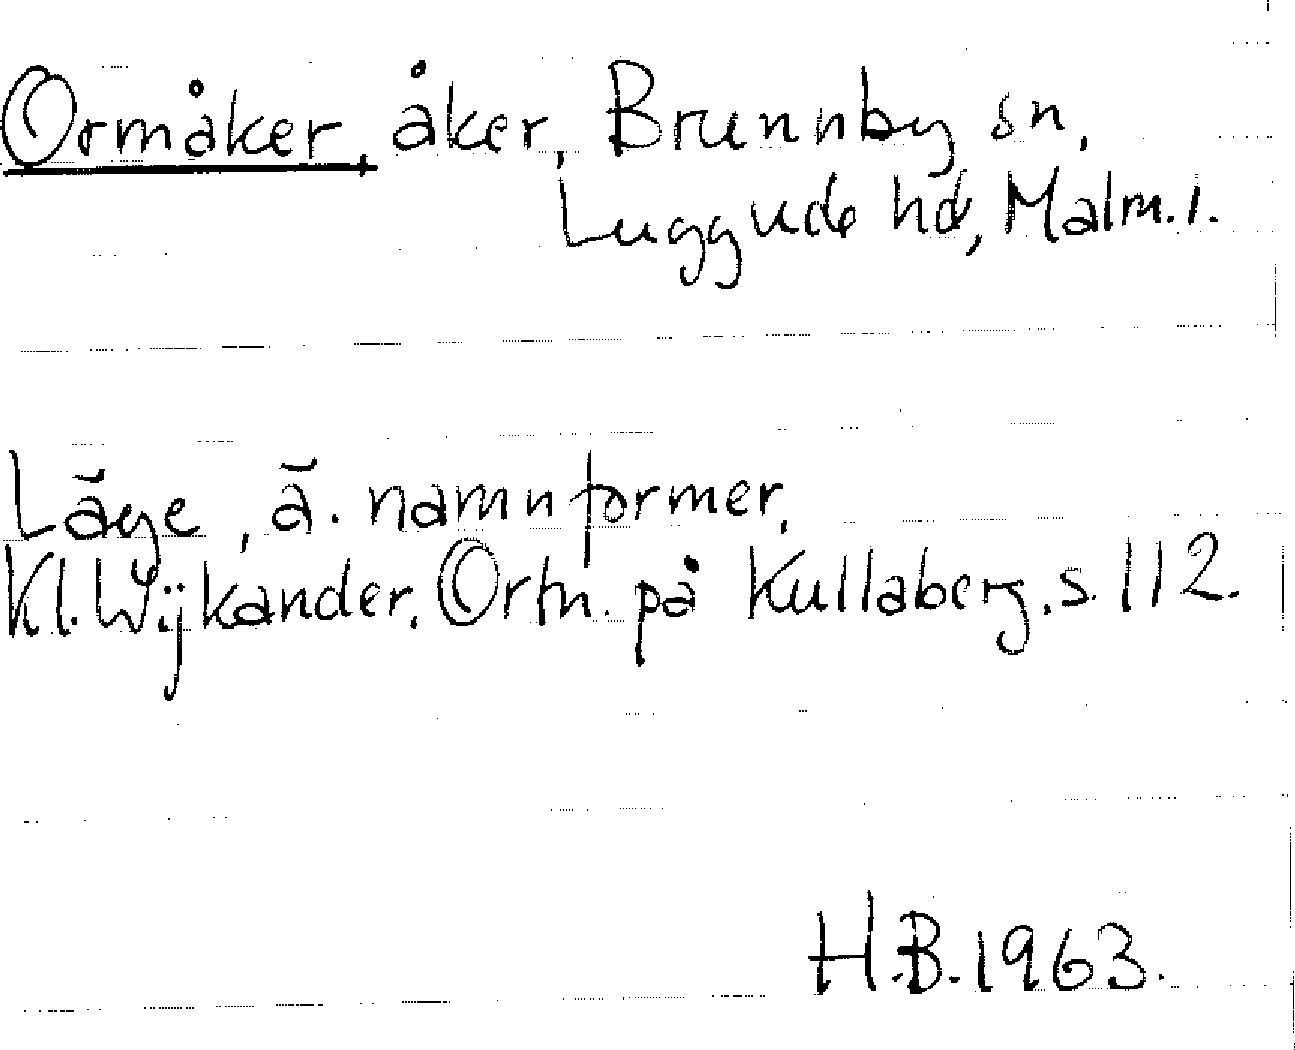 Ormåker, åker, Brunnby sn,
Luggude hd, Malm. l.
Läge, ä. namnformer,
Kl. Wijkander. Ortn. på Kullaberg. s. 112.
H.B. 1963.